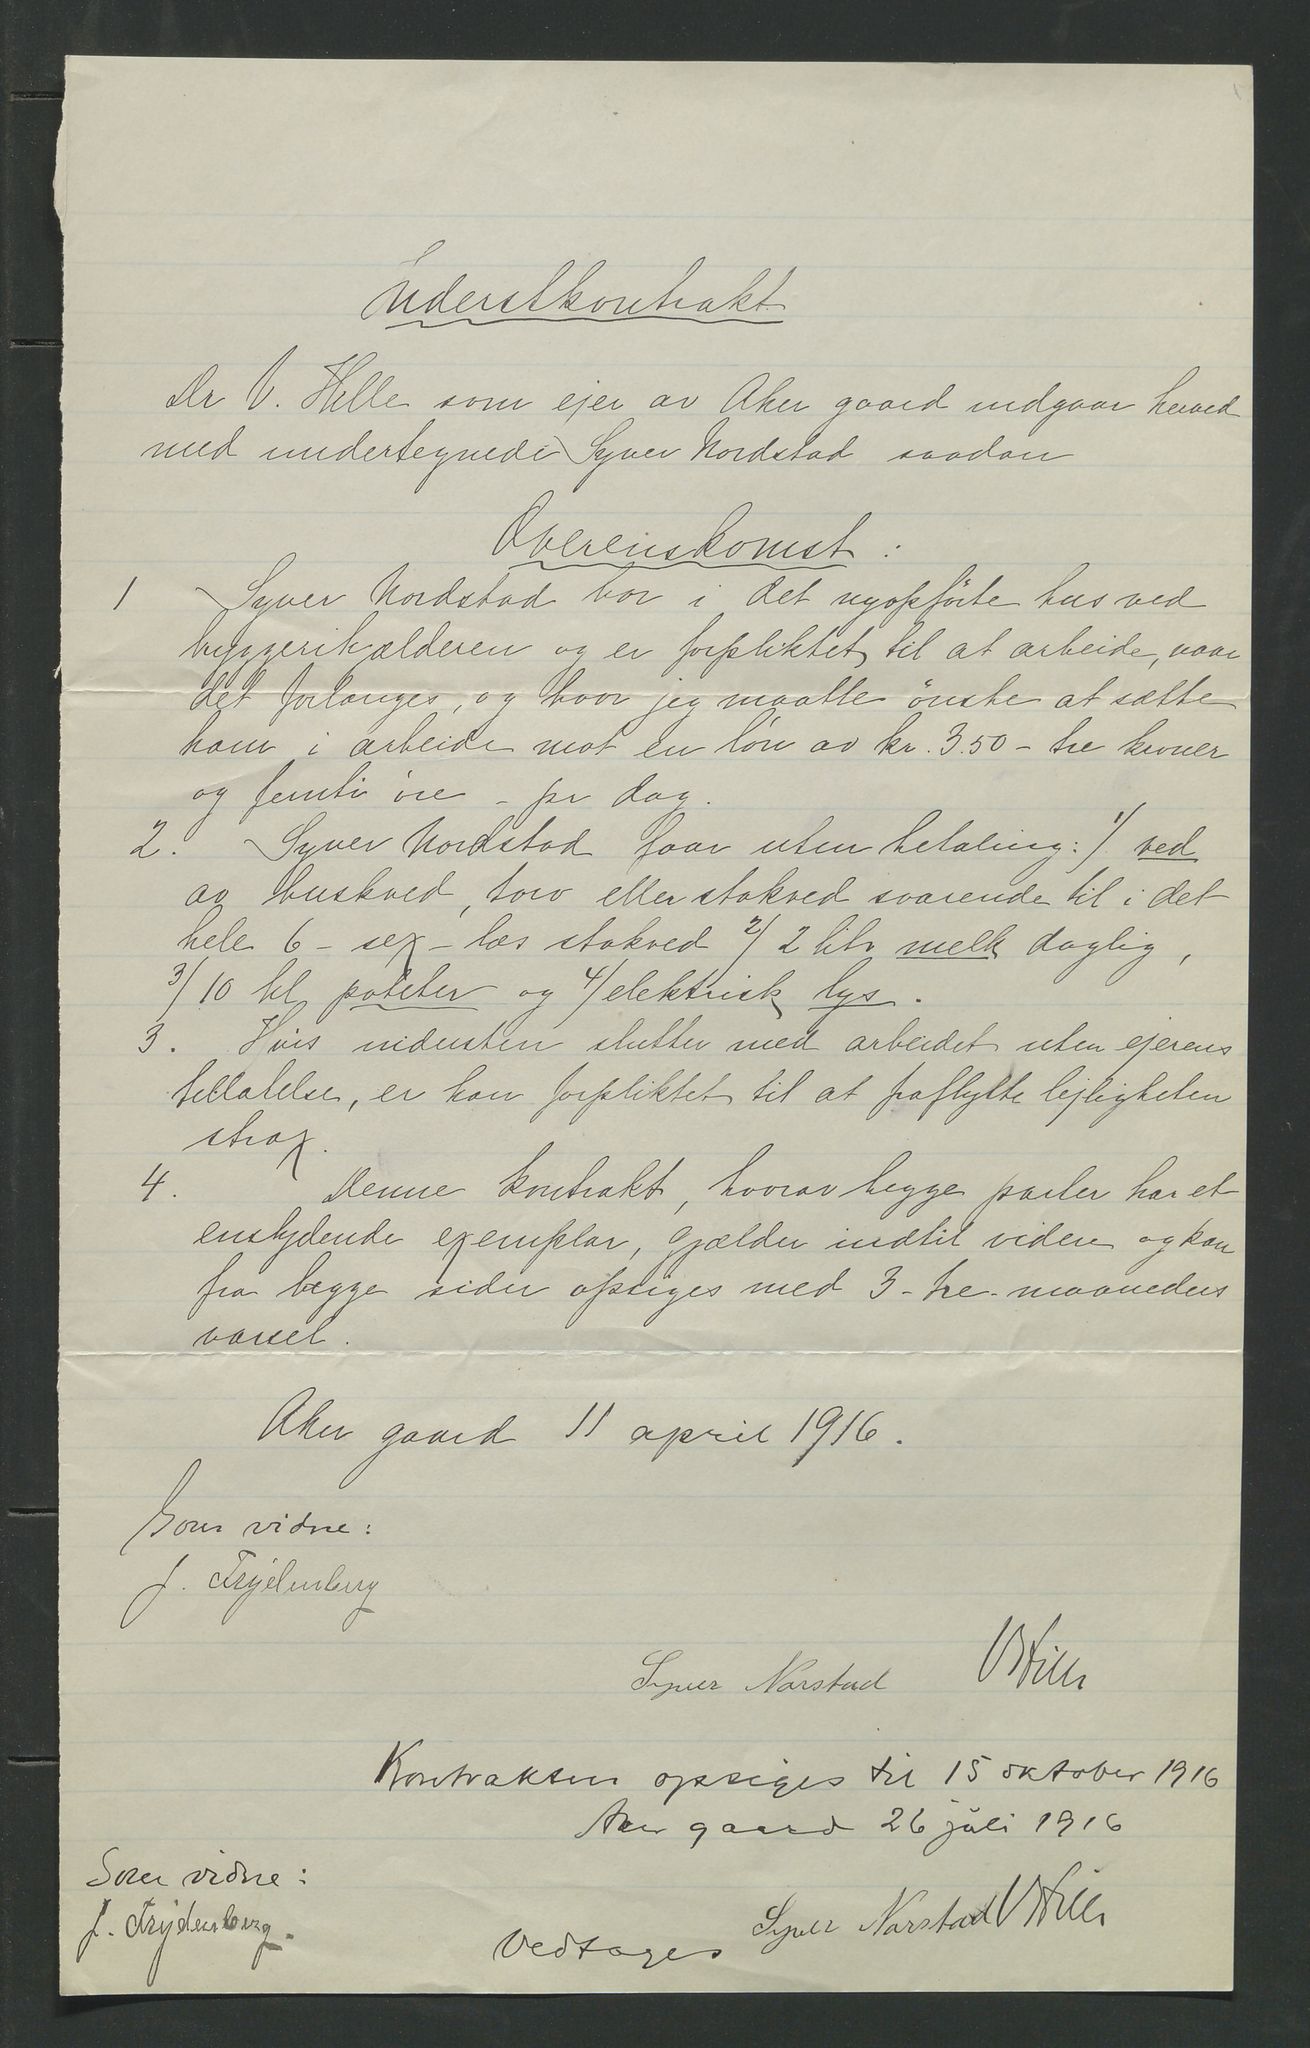 Inderstkontrakt
Dr V. Hille som ejer av Aker gaard indgaar herved
med undertegnede Syver Nordstad saadan
Overenskomst :
1 Syver Nordstad bor i det nyopførte hus ved
bryggerikjælderen og er forpliktet til at arbeide, naar
det forlanges, og hvor jeg maatte ønske at sætte
ham i arbeide mot en løn av kr. 3.50 - tre kroner
og femti øre - pr dag.
2. Syver Nordstad faar uten betaling: 1/ ved
av buskved, torv eller stakved svarende til i det
hele 6 - sex - læs stakved 2/ 2 litr melk daglig,
3/ 10 hl poteter og 4/ elektrisk lys.
3. Hvis indersten slutter med arbeidet uten ejerens
tillatelse, er han forpliktet til at fraflytte lejligheten
strax.
4. Denne kontrakt, hvorav begge parter har et
enslydende exemplar, gjælder indtil videre og kan
fra begge sider opsiges med 3 - tre - maaneders
varsel.
Aker gaard 11 april 1916.
Som vidne:
J. Frydenberg
Syver Narstad VHille
Kontrakten opsiges til 15 oktober 1916
Aker gaard 26 juli 1916
Som vidne:
J. Frydenberg.
Vedtages Syver Narstad VHille